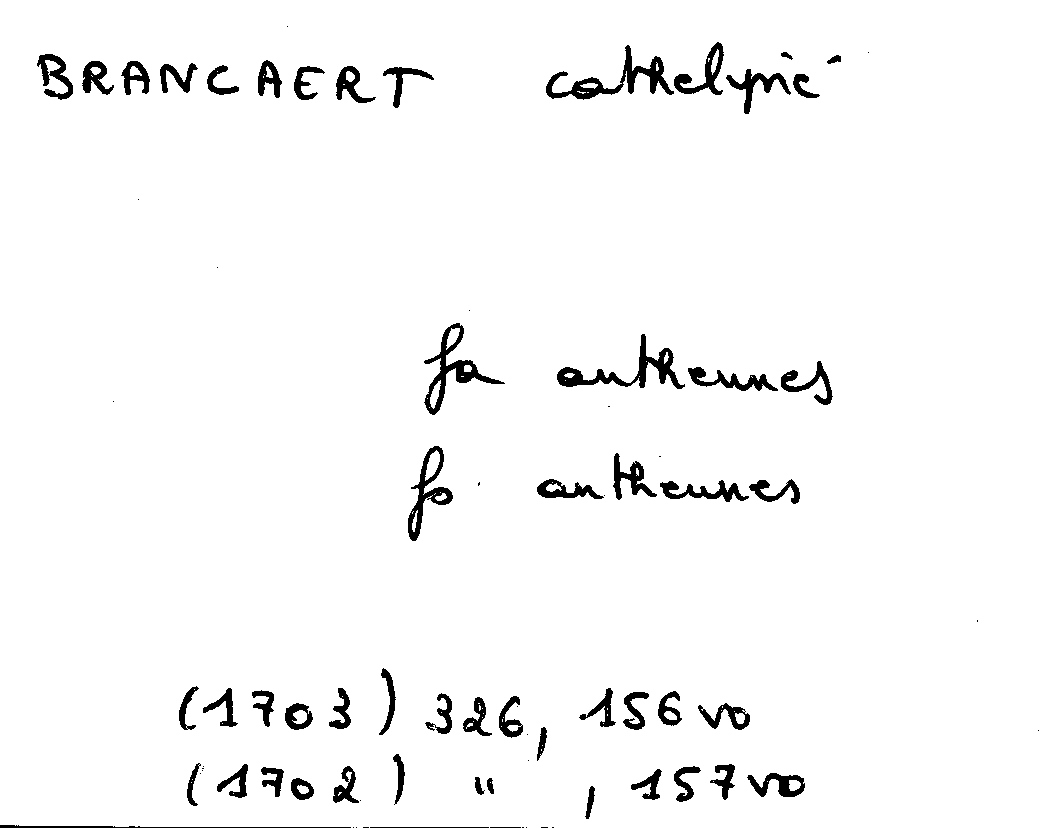 BRANCAERT cathelyne
fa antheunes
fo antheunes
(1703) 326, 156 vo
(1702) " , 157 vo